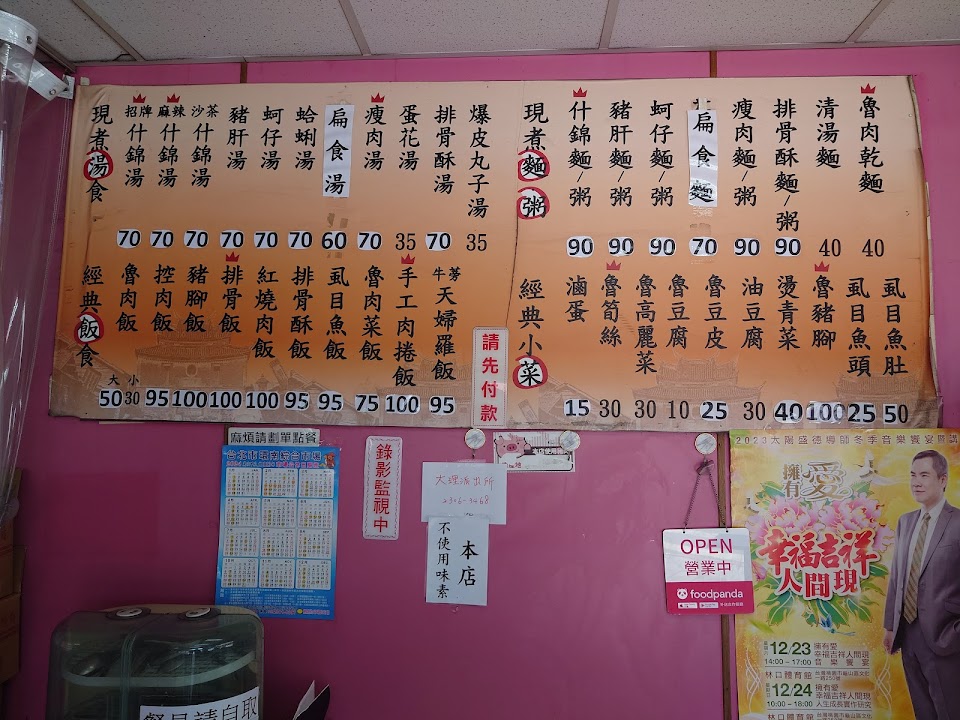 現煮湯食
招牌什錦湯 70
麻辣什錦湯 70
沙茶什錦湯 70
豬肝湯 70
蚵仔湯 70
蛤蜊湯 70
扁食湯 60
瘦肉湯 70
蛋花湯 35
排骨酥湯 70
爆皮丸子湯 35
現煮麵粥
什錦麵/粥 90
豬肝麵/粥 90
蚵仔麵/粥 90
扁食麵 70
瘦肉麵/粥 90
排骨酥麵/粥 90
清湯麵 40
魯肉乾麵 40
經典飯食
魯肉飯 大50 小30
控肉飯 95
豬腳飯 100
排骨飯 100
紅燒肉飯 100
排骨酥飯 95
虱目魚飯 95
魯肉菜飯 75
手工肉捲飯 100
牛蒡天婦羅飯 95
請先付款
經典小菜
滷蛋 15
魯筍絲 30
魯高麗菜 30
魯豆腐 10
魯豆皮 25
油豆腐 30
燙青菜 40
魯豬腳 100
虱目魚頭 25
虱目魚肚 50
麻煩請劃單點餐
錄影監視中
大理派出所
本店
不使用味素
OPEN
營業中
foodpanda
2023太陽盛德導師冬季音樂饗宴暨講
擁有愛
幸福吉祥
人間現
12/23
14:00－17:00
擁有愛
幸福吉祥人間現
音樂饗宴
林口體育館
12/24
10:00－18:00
擁有愛
幸福吉祥人間現
林口體育館
餐具請自取